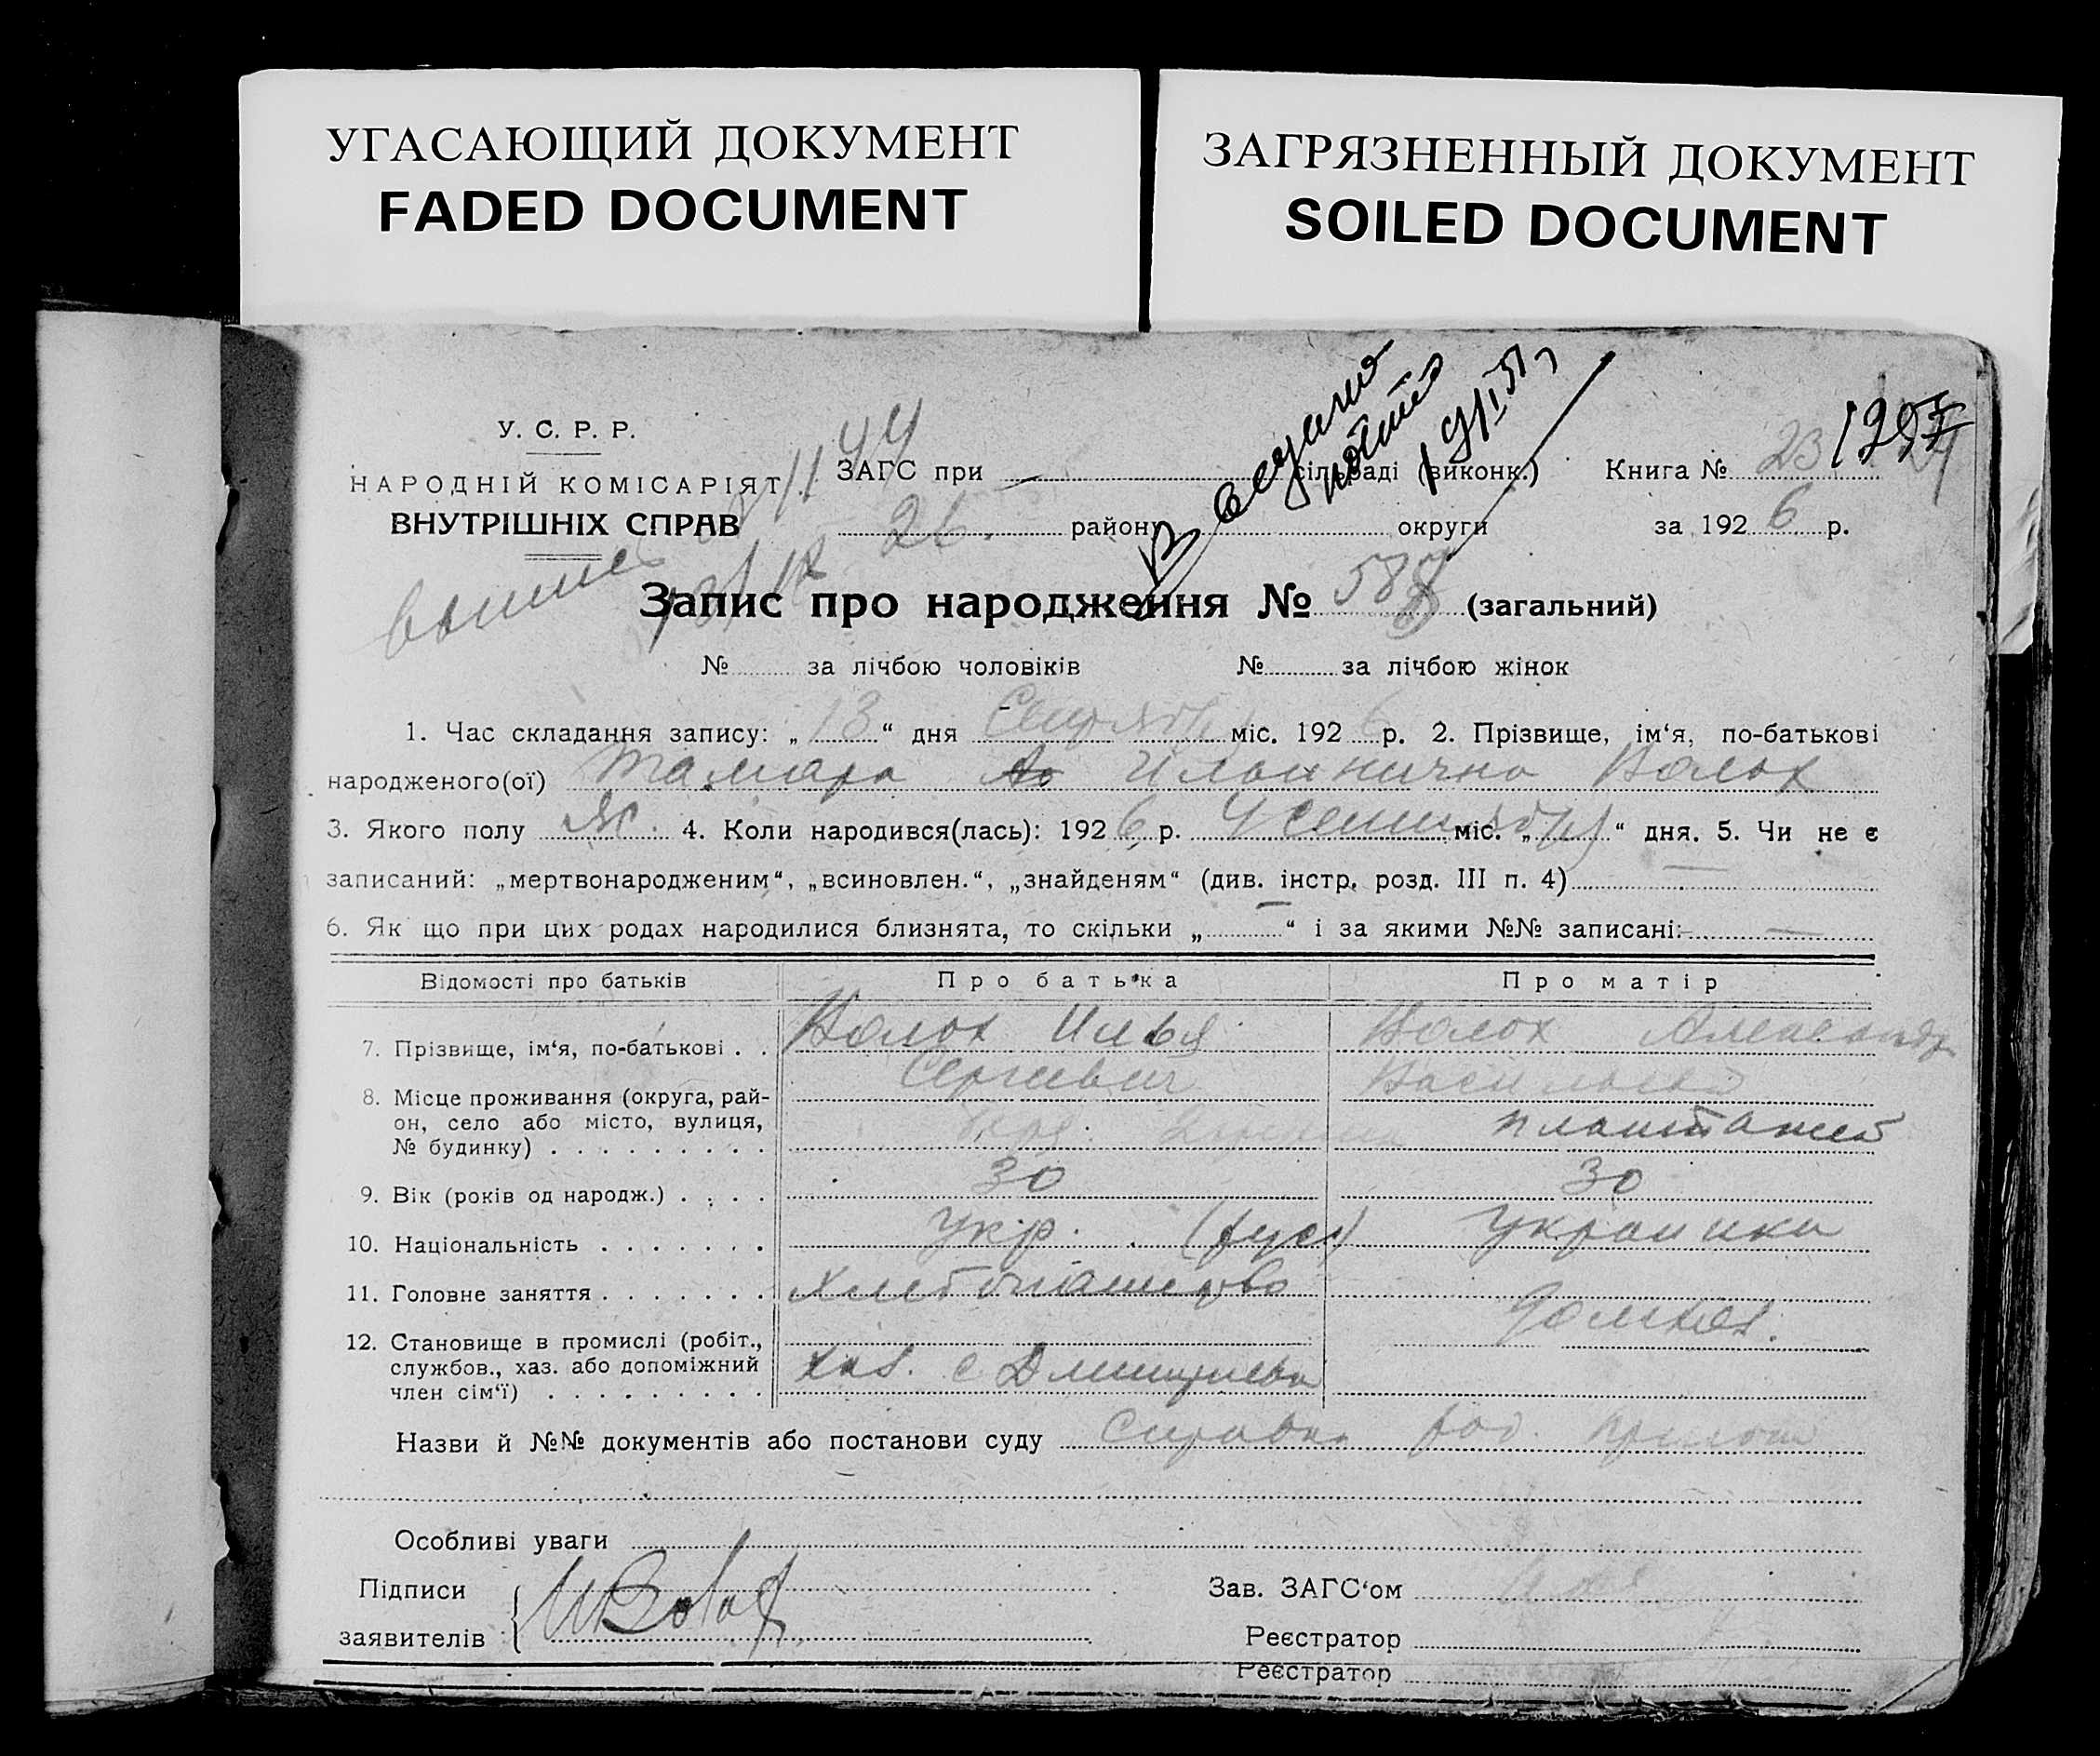 УГАСАЮЩИЙ ДОКУМЕНТ
FADED DOCUMENT
ЗАГРЯЗНЕННЫЙ ДОКУМЕНТ
SOILED DOCUMENT
У. С. Р. Р.
НАРОДНІЙ КОМІСАРІЯТ
ВНУТРІШНІХ СПРАВ
ЗАГС при сільраді (виконк.)
району округи
Книга № 23
за 1926 р.
Запис про народження № 588 (загальний)
№ за лічбою чоловіків № за лічбою жінок
1. Час складання запису: „13“ дня Сентября міс. 1926 р. 2. Прізвище, ім‘я, по-батькові
народженого(ої) Тамара Ильинична Волох
3. Якого полу ж. 4. Коли народився(лась): 1926 р. 4 сентября міс. „ “ дня. 5. Чи не є
записаний: „мертвонародженим“, „всиновлен.“, „знайденям“ (див. інстр. розд. III п. 4) —
6. Як що при цих родах народилися близнята, то скільки „—“ і за якими №№ записані: —
Відомості про батьків Про батька Про матір
7. Прізвище, ім‘я, по-батькові . . Волох Илья Волох Александр
Сергиевич Васильевна
8. Місце проживання (округа, рай-
он, село або місто, вулиця,
№ будинку) . . . . . . . . .
9. Вік (років од народж.) . . . . 30 30
10. Національність . . . . . . . Укр. (рус) Украинка
11. Головне заняття . . . . . . . Хлебопашество
Домхоз.
12. Становище в промислі (робіт.,
службов., хаз. або допоміжний
член сім‘ї) . . . . . . . . . хаз. с Дмитриевка
Назви й №№ документів або постанови суду Справка род.
Особливі уваги
Підписи
заявителів
И Волох
Зав. ЗАГС‘ом
Реєстратор
Реєстратор